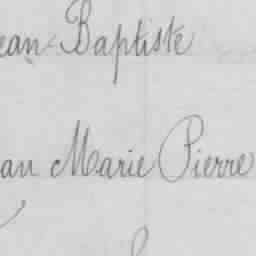 ean-Baptiste
an Marie Pierre